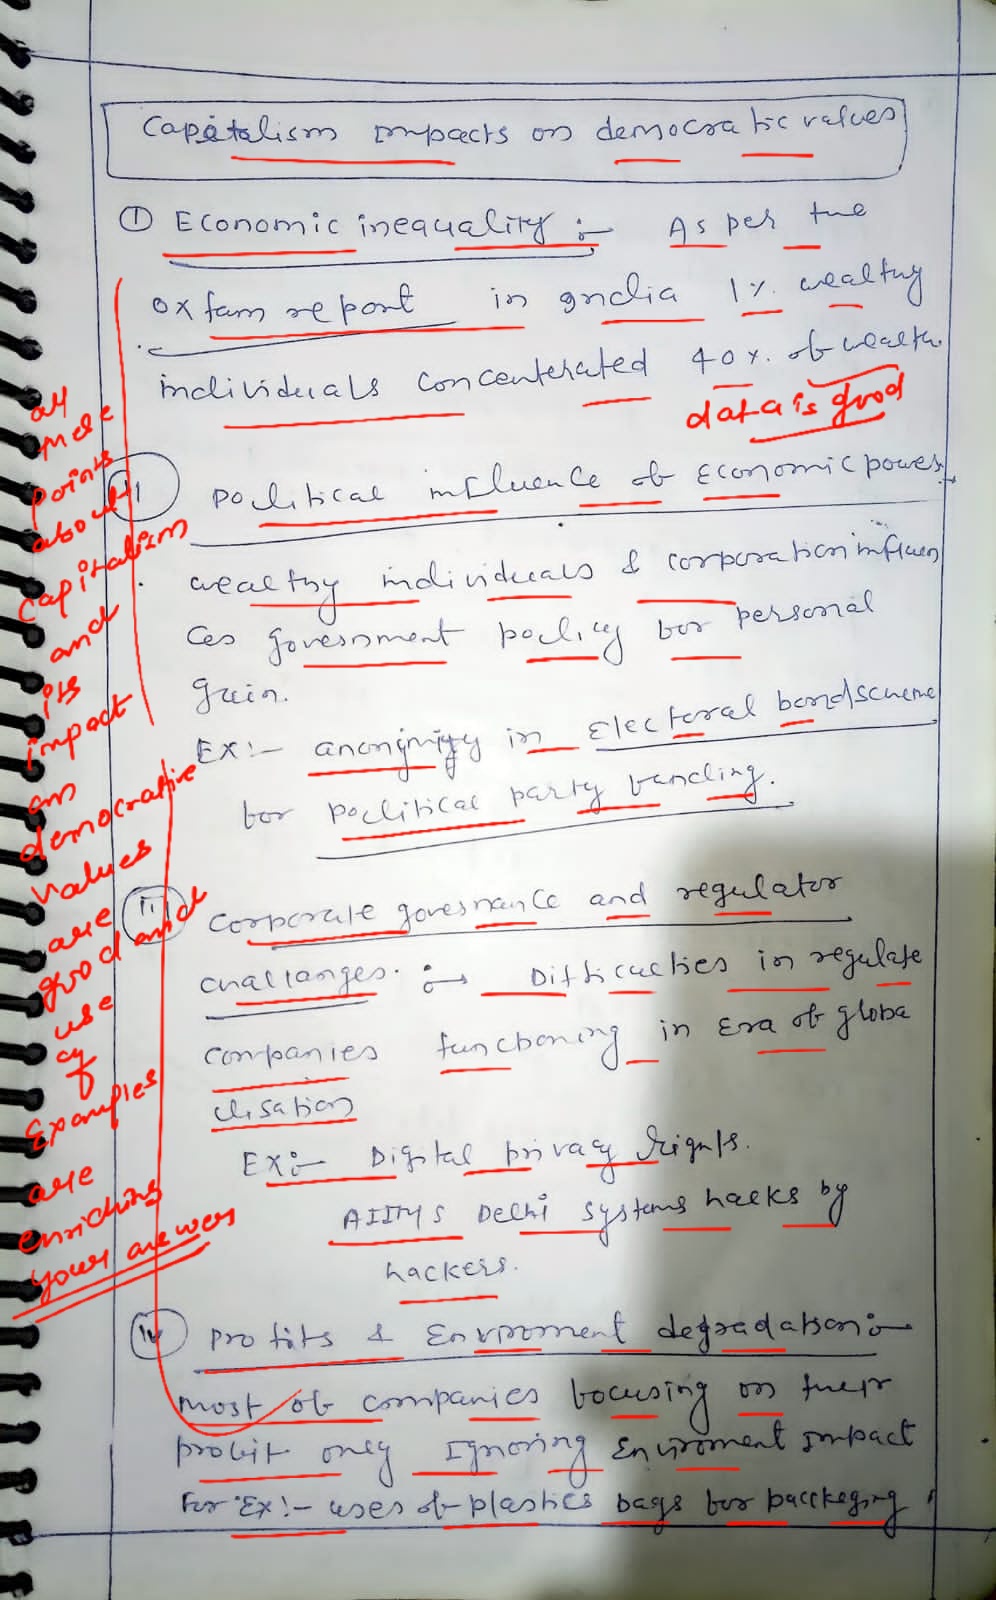 Capitalism impacts on democratic values
① Economic inequality :- As per the
oxfam report in India 1% wealthy
individuals concenterated 40% of wealth
data is good
ii political influence of Economic power
wealthy individuals & corporation influen
ces government policy for personal
gain.
Ex:- anonimity in Electoral bond scheme
for political party funding.
iii corporate governance and regulator
challanges. :- Difficulties in regulate
companies functioning in Era of globa
lisation
Ex:- Digital privacy rights.
AIIMS Delhi systems hacks by
hackers.
iv profits & Enviroment degradation:-
most of companies focusing on their
profit only Ignoring Enviroment impact
For Ex:- uses of plastics bags for packkeging
all
these
points
about
capitalism
and
its
impact
on
democrative
values
are
good and
use
of
Examples
are
enriching
your answer